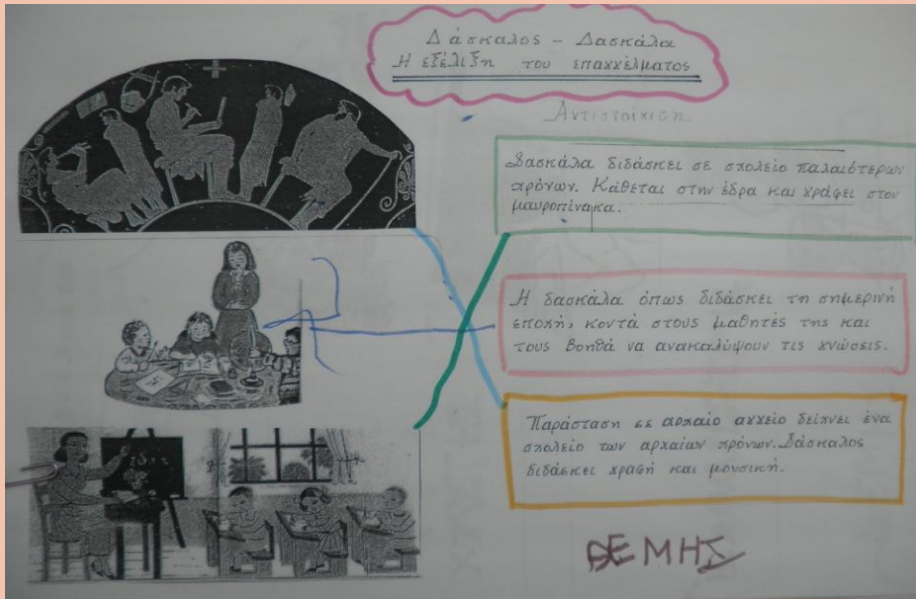 Δάσκαλος - Δασκάλα
Η εξέλιξη του επαγγέλματος
Αντιστοίχιση.
Δασκάλα διδάσκει σε σχολείο παλαιότερων
χρόνων. Κάθεται στην έδρα και γράφει στον
μαυροπίνακα.
Η δασκάλα όπως διδάσκει τη σημερινή
εποχή, κοντά στους μαθητές της και
τους βοηθά να ανακαλύψουν τις γνώσεις.
Παράσταση σε αρχαίο αγγείο δείχνει ένα
σχολείο των αρχαίων χρόνων. Δάσκαλος
διδάσκει γραφή και μουσική.
ΘΕΜΗΣ